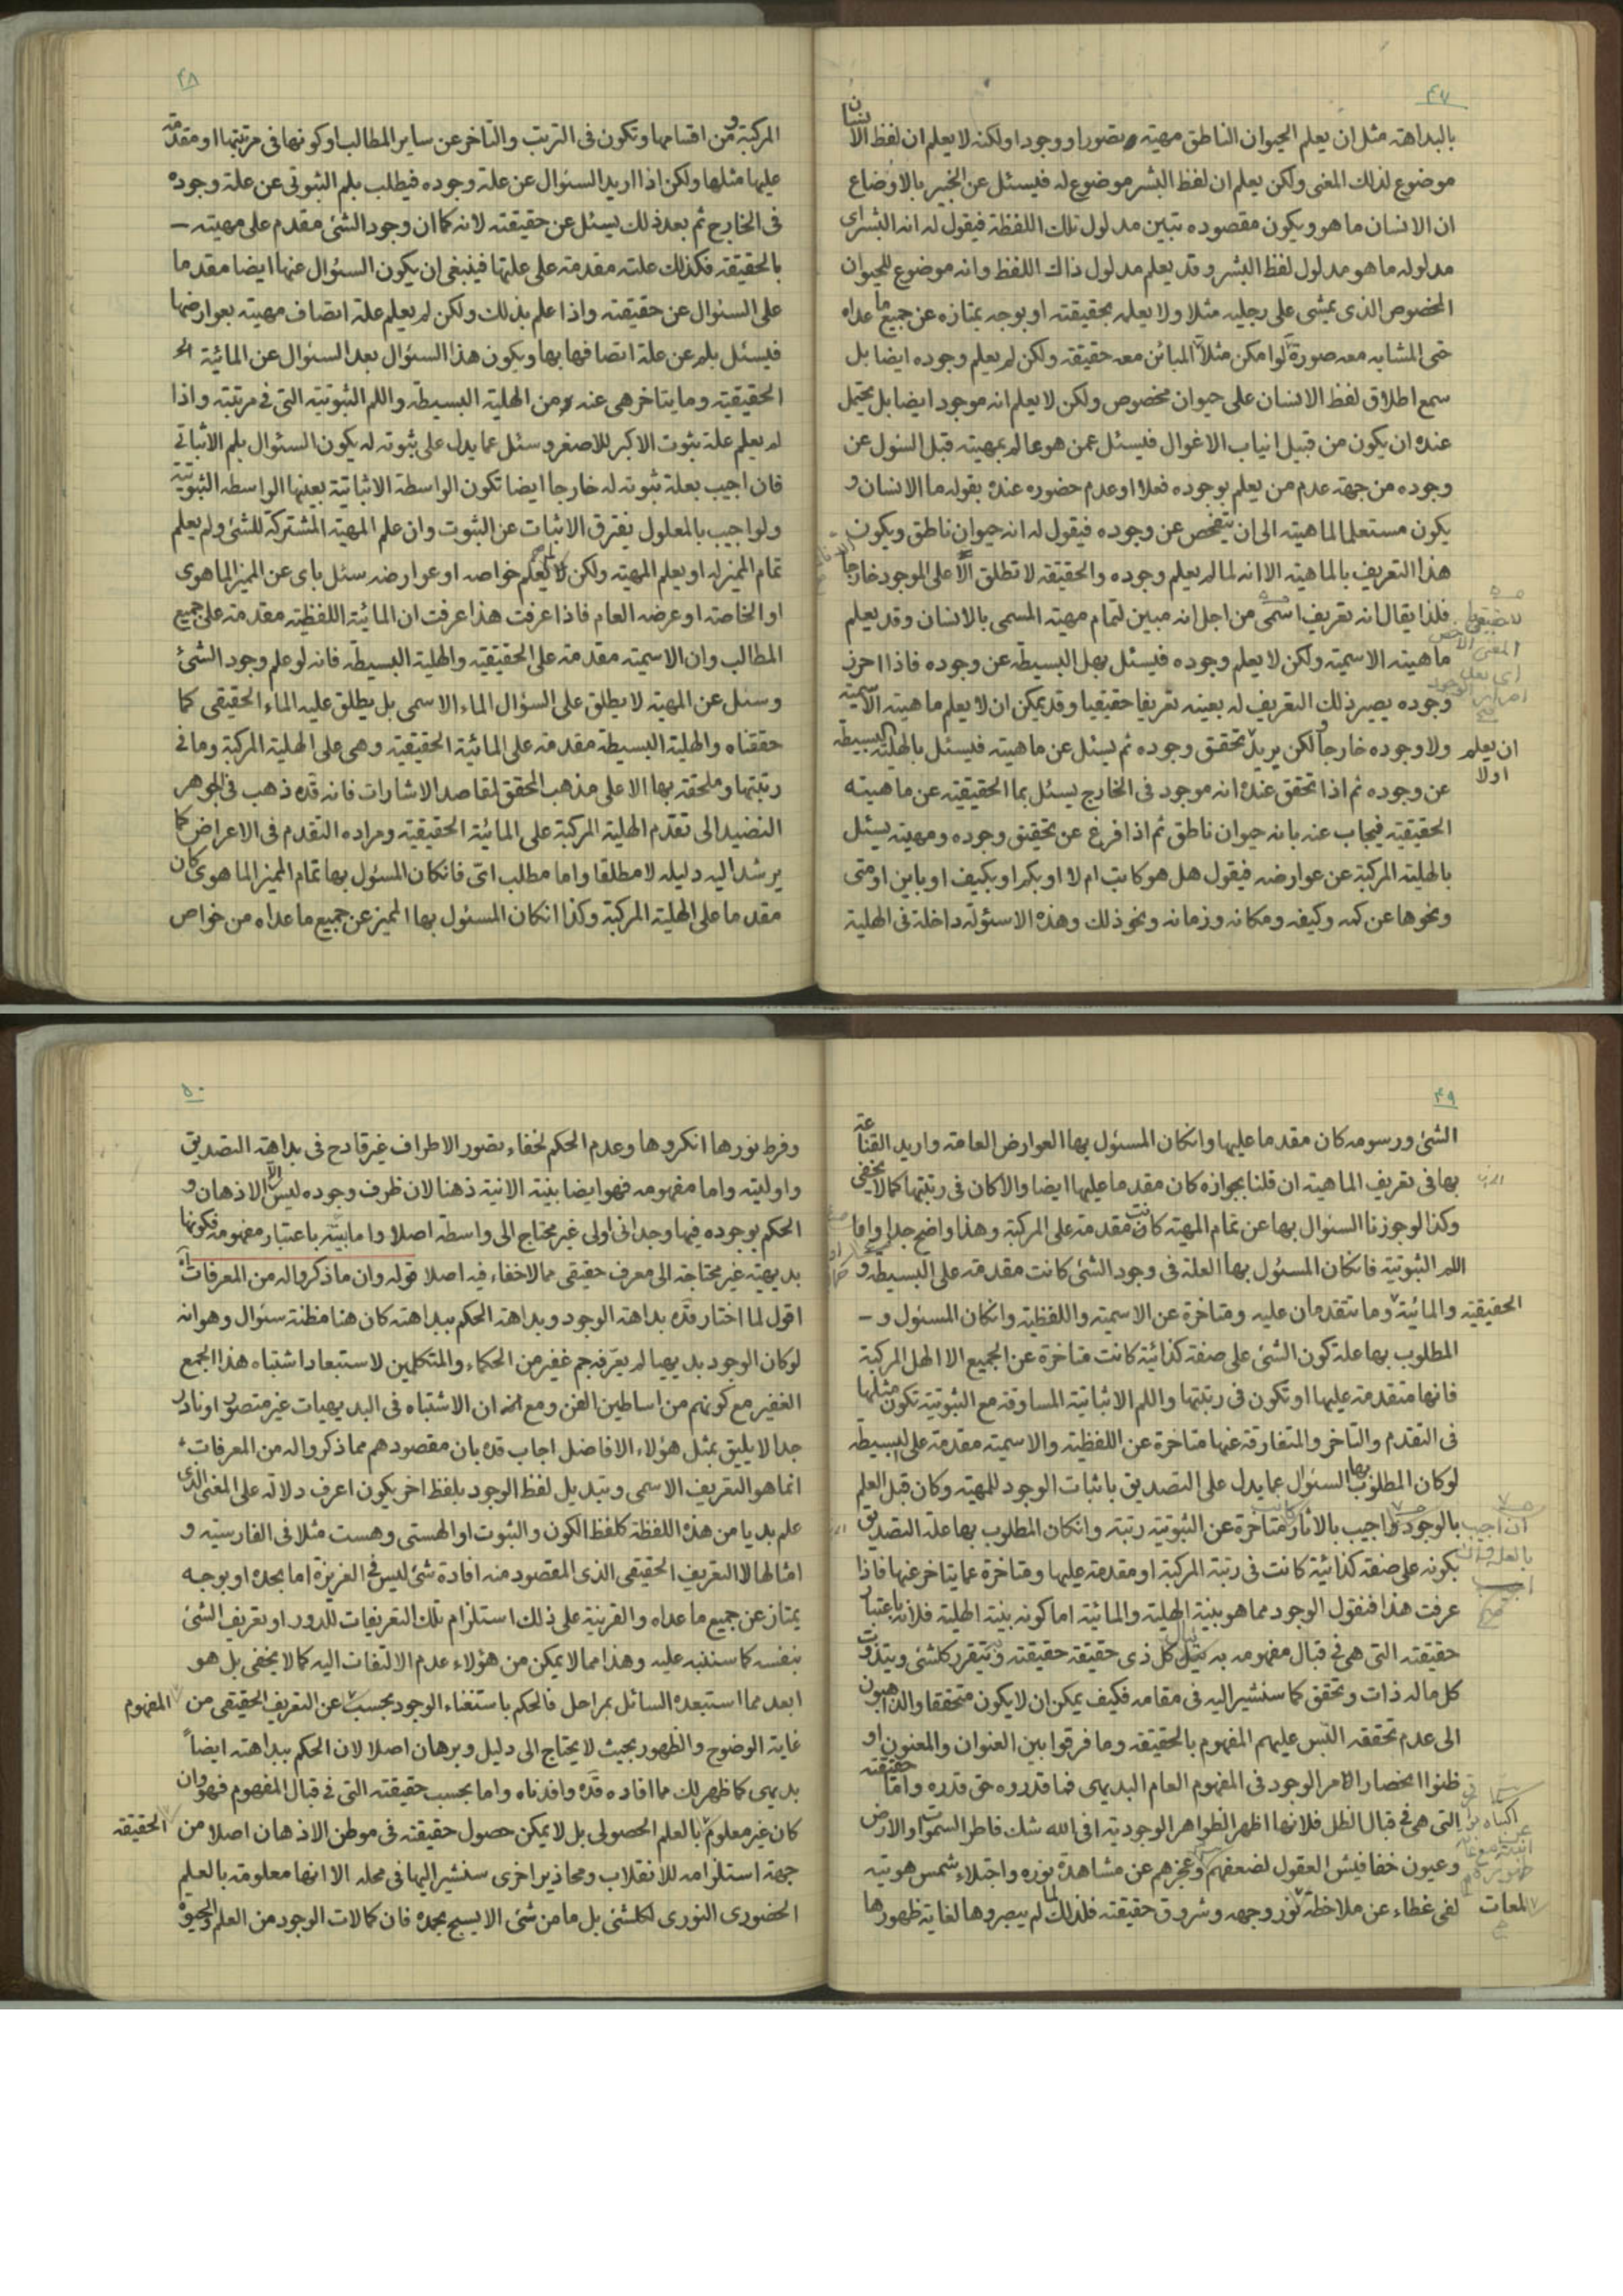 ۴۷
بالبداهته مثل ان يعلم الحيوان الناطق مهيته تصورا و وجودا ولكنه لا يعلم ان لفظ الانسان
موضوع لذلك المغنى ولكن يعلم ان لفظ البشر موضوع له فيسئل عن الخبير بالاوضاع
ان الانسان ما هو ويكون مقصوده تبيين مدلول تلك اللفظة فيقول له انه البشر اى
مدلوله ما هو مدلول لفظ البشر وقد يعلم مدلول ذاك اللفظ وانه موضوع للحيوان
المخصوص الذى يمشى على رجليه مثلا ولا يعلمه بحقيقته او بوجه يمتاز به عن جميع ما عداه
حتى المشابه معه صورة لو امكن مثلا المبائن معه حقيقة ولكن لم يعلم وجوده ايضا بل
سمع اطلاق لفظ الانسان على حيوان مخصوص ولكن لا يعلم انه موجود ايضا بل يحتمل
عنده ان يكون من قبيل انياب الاغوال فيسئل عمن هو عالم بمهيته قبل السئول عن
وجوده من جهته عدم من يعلم بوجوده فعلا او عدم حضوره عنده بقوله ما الانسان و
يكون مستعلما لماهيته الى ان يتفحص عن وجوده فيقول له انه حيوان ناطق ويكون
هذا التعريف بالماهيته الا انه لما لم يعلم وجوده والحقيقة لا تطلق الا على الموجود خارجا
فلذا يقال انه تعريف اسمى من اجل انه مبين لتمام مهيته المسمى بالانسان وقد يعلم
ماهيته الاسميته ولكن لا يعلم وجوده فيسئل بهل البسيطه عن وجوده فاذا احرز
وجوده يصير ذلك التعريف له بعينه تعريفا حقيقيا وقد يمكن ان لا يعلم ماهيته الاسميته
ان يعلم اولا
ولا وجوده خارجا ولكن يريد تحقق وجوده ثم يسئل عن ماهيته فيسئل بالهلية البسيطة
عن وجوده ثم اذا تحقق عنده انه موجود فى الخارج يسئل بما الحقيقيه عن ماهيته
الحقيقيه فيجاب عنه بانه حيوان ناطق ثم اذا فرغ عن تحقيق وجوده ومهيته يسئل
بالهلية المركبة عن عوارضه فيقول هل هو كاتب ام لا او بكم او بكيف او باين او متى
ونحوها عن كمه وكيفه ومكانه وزمانه ونحو ذلك وهذه الاسئولة داخلة فى الهلية
۴۸
المركبة و من اقسامها وتكون فى الترتب والتاخر عن ساير المطالب او كونها فى مرتبتها او مقدمة
عليها مثلها ولكن اذا اريد السئوال عن علة وجوده فيطلب بلم الثبوتى عن علة وجوده
فى الخارج ثم بعد ذلك يسئل عن حقيقته لانه كما ان وجود الشئ مقدم على مهيته
بالحقيقة فكذلك علته مقدمة على علتها فينبغى ان يكون السئوال عنها ايضا مقدما
على السئوال عن حقيقته واذا علم بذلك ولكن لم يعلم علة اتصاف مهيته بعوارضها
فيسئل بلم عن علة اتصافها بها ويكون هذا السئوال بعد السئوال عن المائية
الحقيقية وما يتاخر هى عنه من الهلية البسيطة واللم الثبوتية التى فى مرتبته واذا
لم يعلم علة ثبوت الاكبر للاصغر وسئل عما يدل على ثبوته له يكون السئوال بلم الاثباتى
فان اجيب بعلة ثبوته له خارجا ايضا تكون الواسطة الاثباتية بعينها الواسطه الثبوتية
ولو اجيب بالمعلول يفترق الاثبات عن الثبوت وان علم المهيته المشتركة للشئ ولم يعلم
تمام المميز له او يعلم المهيته ولكن لم يعلم خواصه او عوارضه سئل باى عن المميز الماهوى
او الخاصة او عرضه العام فاذا عرفت هذا عرفت ان المائية اللفظية مقدمة على جميع
المطالب وان الاسمية مقدمة على الحقيقية والهلية البسيطة فانه لو علم وجود الشئ
وسئل عن المهيته لا يطلق على السؤال الماء الاسمى بل يطلق عليه الماء الحقيقى كما
حققناه والهلية البسيطة مقدمة على المائية الحقيقية وهى على الهلية المركبة وما فى
رتبتها وملحقة بها الا على مذهب المحقق لمقاصد الاشارات فانه قده ذهب فى الجوهر
النضيد الى تقدم الهلية المركبة على المائية الحقيقية ومراده التقدم فى الاعراض كما
يرشد اليه دليله لا مطلقا واما مطلب اى فانكان المسئول بها تمام المميز الماهوى كان
مقدما على الهلية المركبة وكذا انكان المسئول بها المميز عن جميع ما عداه من خواص
۴۹
الشئ ورسومه كان مقدما عليها وانكان المسئول بها العوارض العامة واريد القناعة
بها فى تعريف الماهيته ان قلنا بجوازه كان مقدما عليها ايضا والا كان فى رتبتها كما لا يخفى
وكذا لو جوزنا السئوال بها عن تمام المهيته كانت مقدمة على المركبة وهذا واضح جدا واما
اللم الثبوتية فانكان المسئول بها العلة فى وجود الشئ كانت مقدمة على البسيطه و
الحقيقيته والمائية وما تتقدمان عليه ومتاخرة عن الاسمية واللفظية وانكان المسئول و
المطلوب بها علة كون الشئ على صفة كذائية كانت متاخرة عن الجميع الا الهل المركبة
فانها متقدمة عليها او تكون فى رتبتها واللم الاثباتية المساوقة مع الثبوتية تكون مثلها
فى التقدم والتاخر والمتفارقة عنها متاخرة عن اللفظية والاسمية مقدمة على البسيطة
لو كان المطلوب بها السئوال عما يدل على التصديق باثبات الوجود للمهيته وكان قبل العلم
بالوجود واجيب بالاثار كانت متاخرة عن الثبوتية رتبة وانكان المطلوب بها علة التصديق
بكونه على صفة كذائية كانت فى رتبة المركبة او مقدمة عليها ومتاخرة عما يتاخر عنها فاذا
عرفت هذا فنقول الوجود مما هو بينة الهلية والمائية اما كونه بينة الهلية فلانه باعتبار
حقيقته التى هى فى قبال مفهومه به ينال كل ذى حقيقة حقيقته ويتقرر كلشئ ويتذوت
كل ماله ذات وتحقق كما سنشير اليه فى مقامه فكيف يمكن ان لا يكون متحققا والذاهبون
الى عدم تحققه التبس عليهم المفهوم بالحقيقة وما فرقوا بين العنوان والمعنون او
ظنوا انحصار الامر الوجود فى المفهوم العام البديهى فما قدروه حق قدره واما حقيقته
التى هى فى قبال الظل فلانها اظهر الظواهر الوجودية افى الله شك فاطر السموات والارض
وعيون خفافيش العقول لضعفهم وعجزهم عن مشاهدة نوره واجتلاء شمس هويته
لمعات
لفى غطاء عن ملاحظة نور وجهه وشروق حقيقته فلذلك لم يبصروها لغاية ظهورها
۵۰
وفرط نورها انكروها وعدم الحكم لخفاء تصور الاطراف غير قادح فى بداهة التصديق
واوليته واما مفهومه فهو ايضا بينة الانية ذهنا لان ظرف وجوده ليس الا الاذهان و
الحكم بوجوده فيها وجدانى اولى غير محتاج الى واسطة اصلا واما باعتبار مفهومه فكونها
بديهية غير محتاجة الى معرف حقيقى مما لا خفاء فيه اصلا قوله وان ما ذكروا له من المعرفات اه
اقول لما اختار قده بداهة الوجود وبداهة الحكم ببداهته كان هنا مظنة سئوال وهو انه
لو كان الوجود بديهيا لم يعرفه جم غفير من الحكماء والمتكلمين لاستبعاد اشتباه هذا الجمع
الغفير مع كونهم من اساطين الفن ومع انه ان الاشتباه فى البديهيات غير متصور او نادر
جدا لا يليق بمثل هؤلاء الافاضل اجاب قده بان مقصودهم مما ذكروا له من المعرفات
انما هو التعريف الاسمى وتبديل لفظ الوجود بلفظ اخر يكون اعرف دلالة على المغنى الذى
علم بديا من هذه اللفظة كلفظ الكون والثبوت او الهستى وهست مثلا فى الفارسية و
امثالها لا التعريف الحقيقى الذى المقصود منه افادة شئ ليس فى الغريزة اما بحده او بوجه
يمتاز عن جميع ما عداه والقرينة على ذلك استلزام تلك التعريفات للدور او تعريف الشئ
بنفسه كما سننبه عليه وهذا مما لا يمكن من هؤلاء عدم الالتفات اليه كما لا يخفى بل هو
ابعد مما استبعده السائل بمراحل فالحكم باستغناء الوجود بحسب المفهوم عن التعريف الحقيقى من
غاية الوضوح والظهور بحيث لا يحتاج الى دليل وبرهان اصلا لان الحكم ببداهته ايضاً
بديهى كما ظهر لك مما افاده قده وافدناه واما بحسب حقيقته التى فى قبال المفهوم فهو وان
كان غير معلوم الحقيقة بالعلم الحصولى بل لا يمكن حصول حقيقته فى موطن الاذهان اصلا من
جهة استلزامه للانقلاب ومحاذير اخرى سنشير اليها فى محله الا انها معلومة بالعلم
الحضورى النورى لكلشئ بل ما من شئ الا يسبح بحمده فان كمالات الوجود من العلم والحيوة